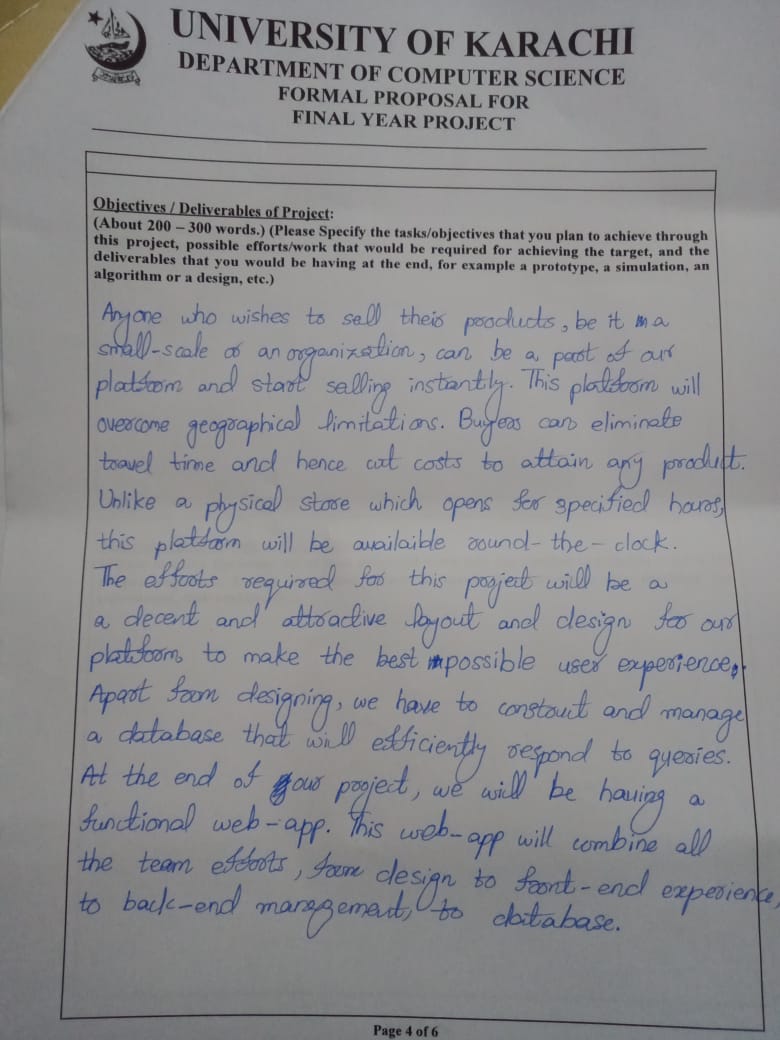 UNIVERSITY OF KARACHI
DEPARTMENT OF COMPUTER SCIENCE
FORMAL PROPOSAL FOR
FINAL YEAR PROJECT
Objectives / Deliverables of Project:
(About 200 – 300 words.) (Please Specify the tasks/objectives that you plan to achieve through
this project, possible efforts/work that would be required for achieving the target, and the
deliverables that you would be having at the end, for example a prototype, a simulation, an
algorithm or a design, etc.)
Anyone who wishes to sell their products, be it a
small-scale or an organization, can be a part of our
platform and start selling instantly. This platform will
overcome geographical limitations. Buyers can eliminate
travel time and hence cut costs to attain any product.
Unlike a physical store which opens for specified hours,
this platform will be availaible round-the-clock.
The efforts required for this project will be a
a decent and attractive layout and design for our
platform, to make the best possible user experience.
Apart from designing, we have to construct and manage
a database that will efficiently respond to queries.
At the end of our project, we will be having a
functional web-app. This web-app will combine all
the team efforts, from design to front-end experience,
to back-end management, to database.
Page 4 of 6